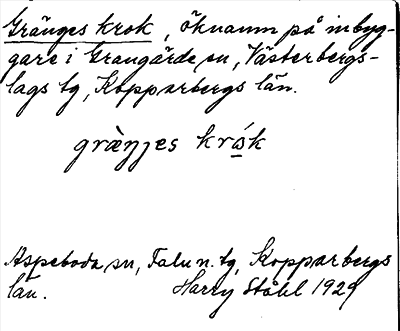 Gränges krok, öknamn på inbyg-
gare i Grangärde sn, Västerbergs-
lags tg, Kopparbergs län.
gràŋjes krók
Aspeboda sn, Falu n. tg, Kopparbergs
län. Harry Ståhl 1929